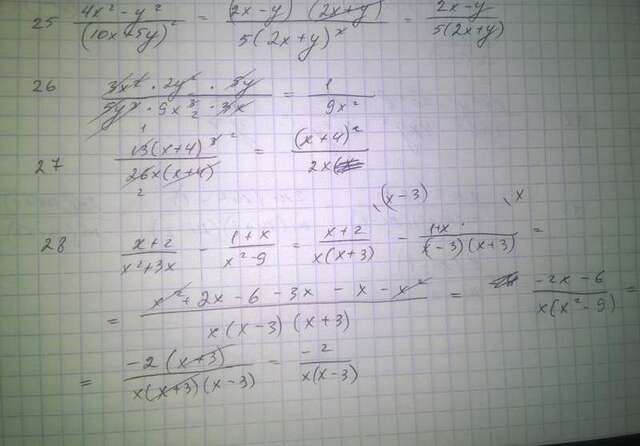 25 (4x² - y²)/(10x + 5y)² = (2x - y)(2x + y)/5(2x + y)² = (2x - y)/5(2x + y)
26 (3x² · 2y² · 5y)/(5y³ · 9x³ · 3x) = 1/9x²
27 13(x + 4)³/26x(x + 4) = (x + 4)²/2x
(x - 3) x
28 (x + 2)/(x² + 3x) - (1 + x)/(x² - 9) = (x + 2)/x(x + 3) - (1 + x)/(x - 3)(x + 3) =
= (x² + 2x - 6 - 3x - x - x²)/x(x - 3)(x + 3) = (-2x - 6)/x(x² - 9) =
= -2(x + 3)/x(x + 3)(x - 3) = -2/x(x - 3)